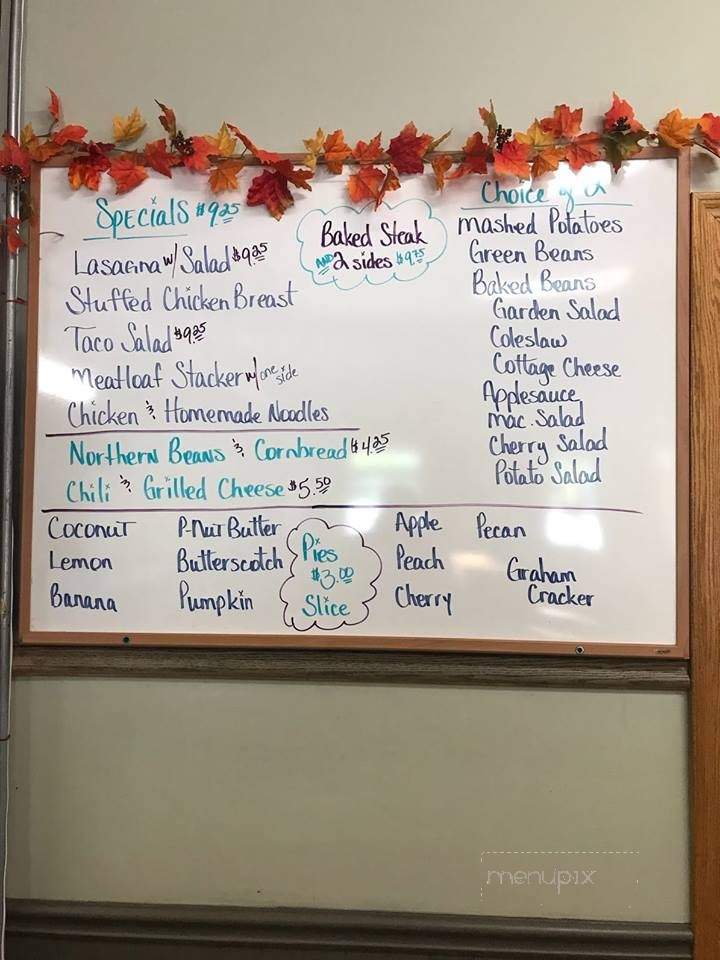 Specials $9.25
Lasagna w/ Salad $9.25
Stuffed Chicken Breast
Taco Salad $9.25
Meatloaf Stacker w/ one side
Chicken & Homemade Noodles
Northern Beans & Cornbread $4.25
Chili & Grilled Cheese $5.50
Baked Steak
AND 2 sides $9.75
Choice of 2
Mashed Potatoes
Green Beans
Baked Beans
Garden Salad
Coleslaw
Cottage Cheese
Applesauce
Mac. Salad
Cherry Salad
Potato Salad
Coconut
Lemon
Banana
P-Nut Butter
Butterscotch
Pumpkin
Pies
$3.00
Slice
Apple
Peach
Cherry
Pecan
Graham
Cracker
menupix